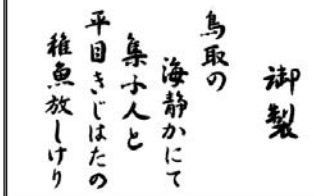 御製
鳥取の
海静かにて
集ふ人と
平目きじはたの
稚魚放しけり